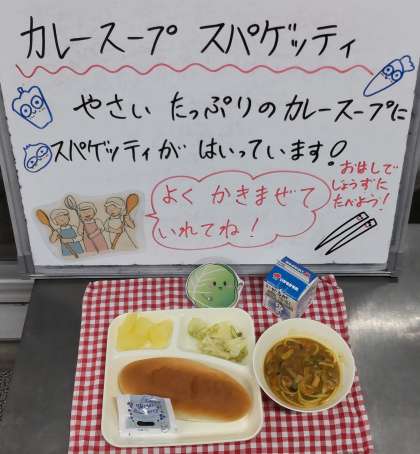 カレースープ スパゲッティ
やさい たっぷりのカレースープに
スパゲッティが はいっています!
おはしで
じょうずに
たべよう!
よく かきまぜて
いれてね!